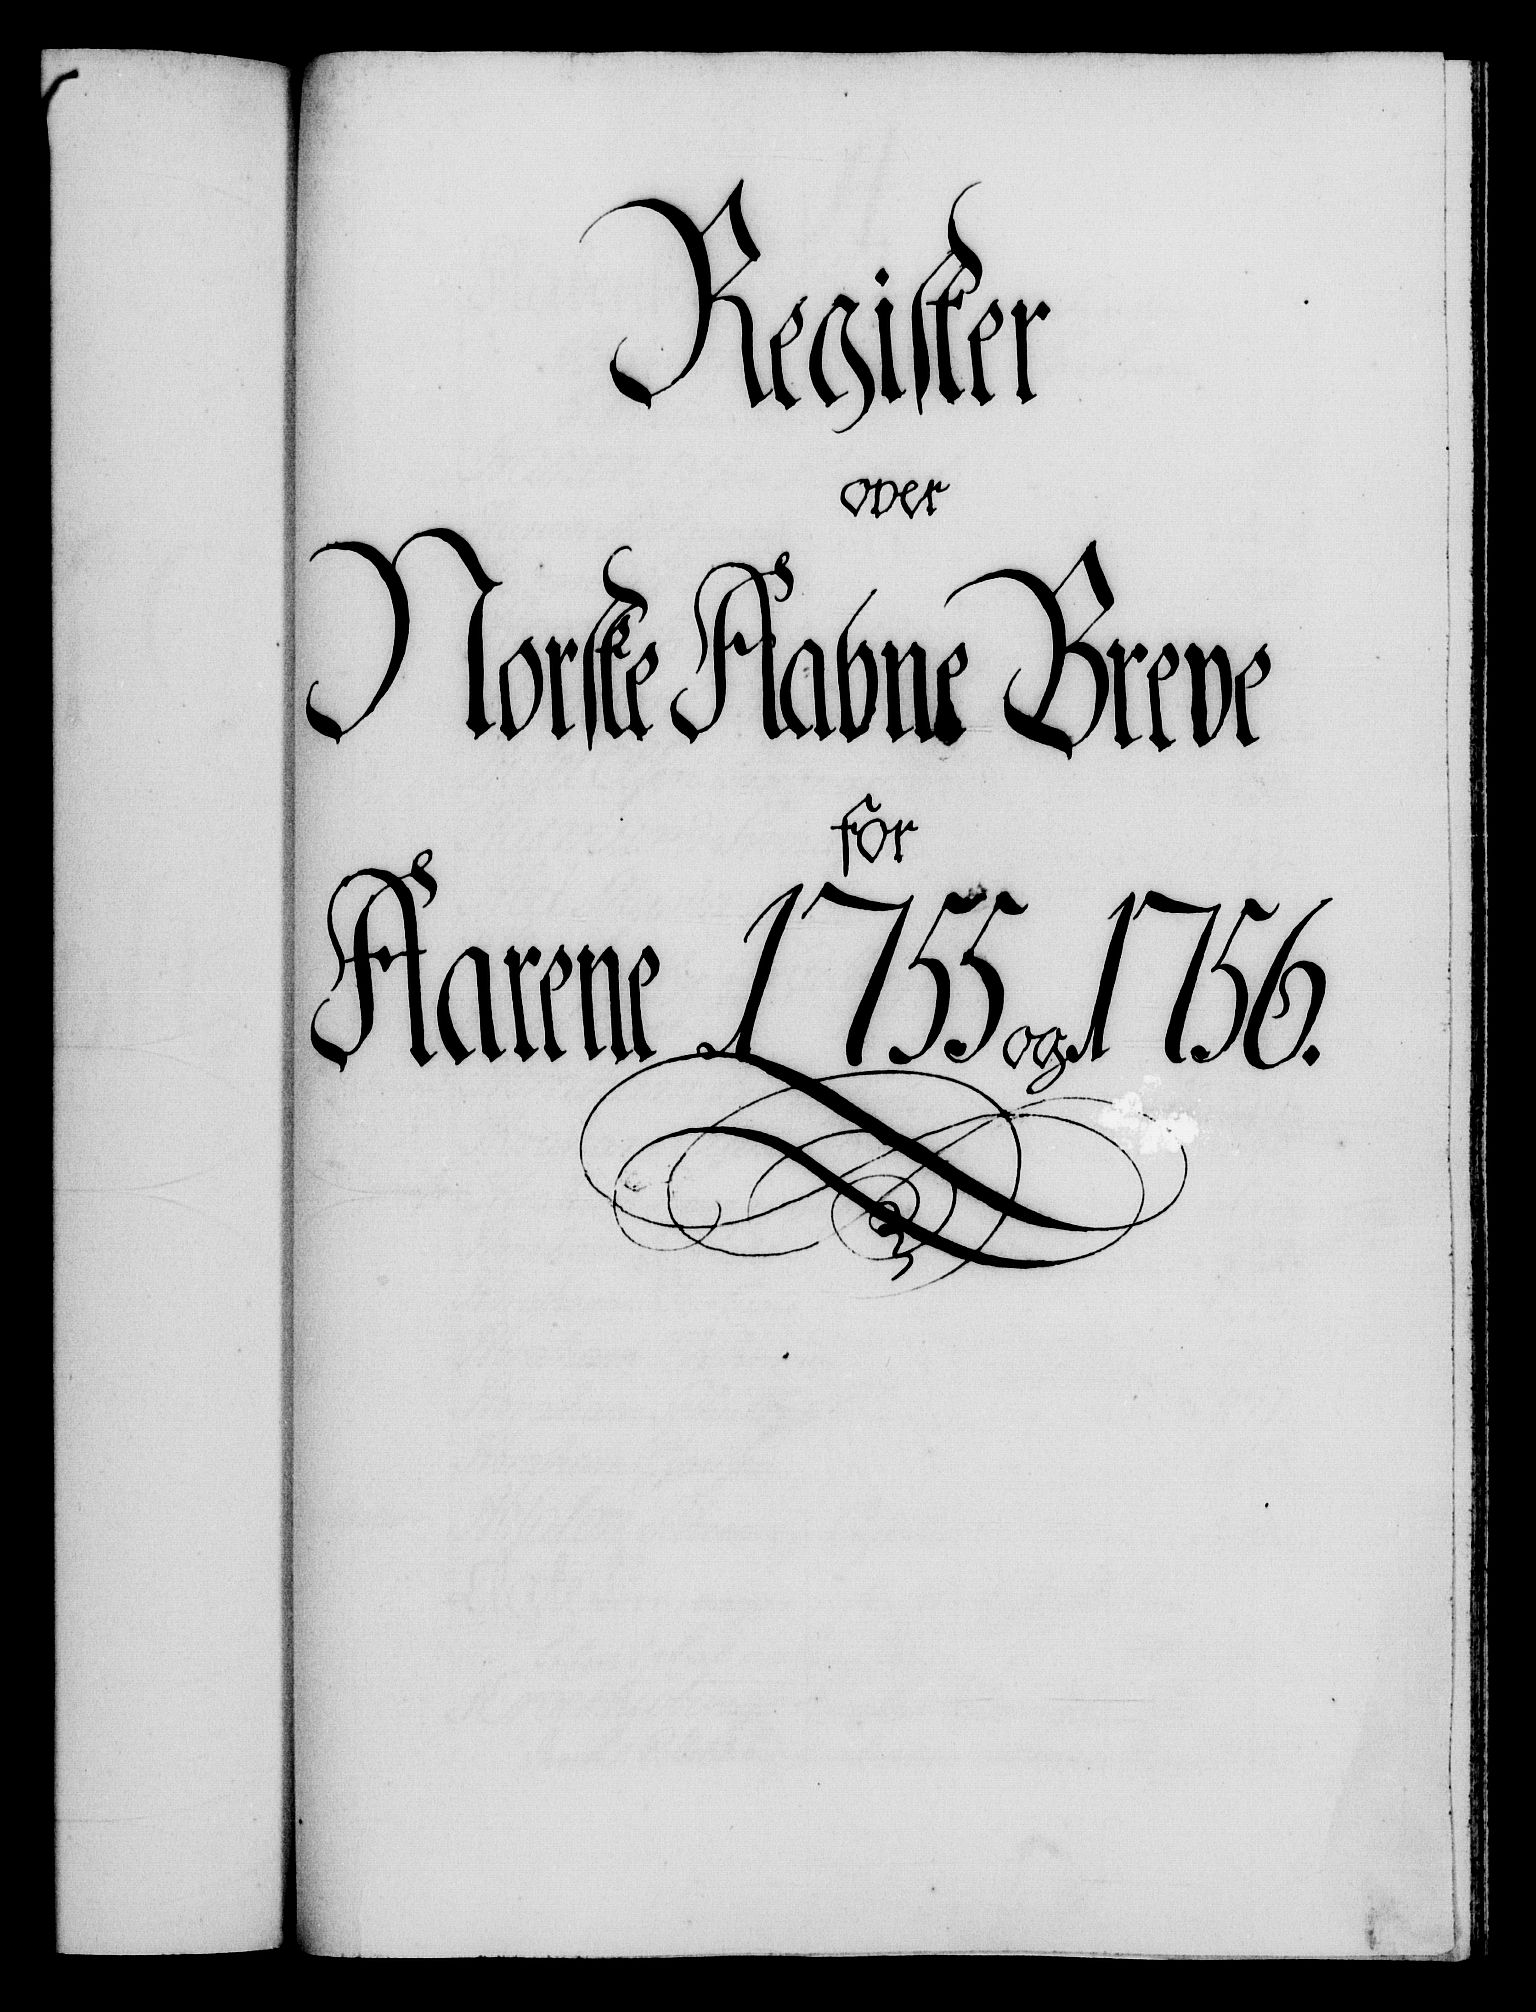 Register
over
Norske Aabne Breve
for
Aarene 1755 og 1756.